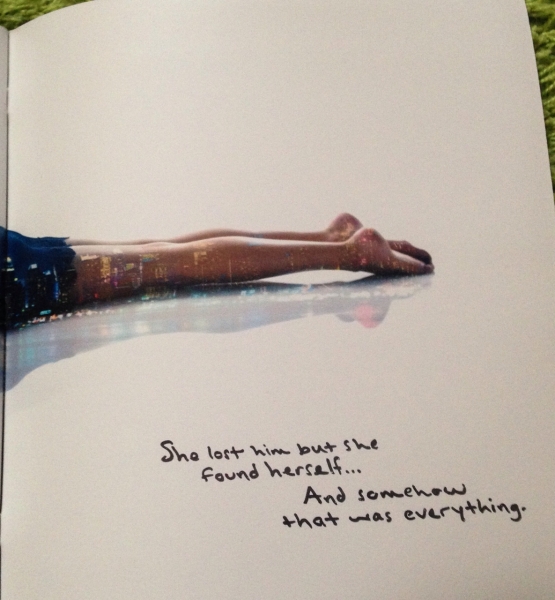 She lost him but she
found herself...
And somehow
that was everything.